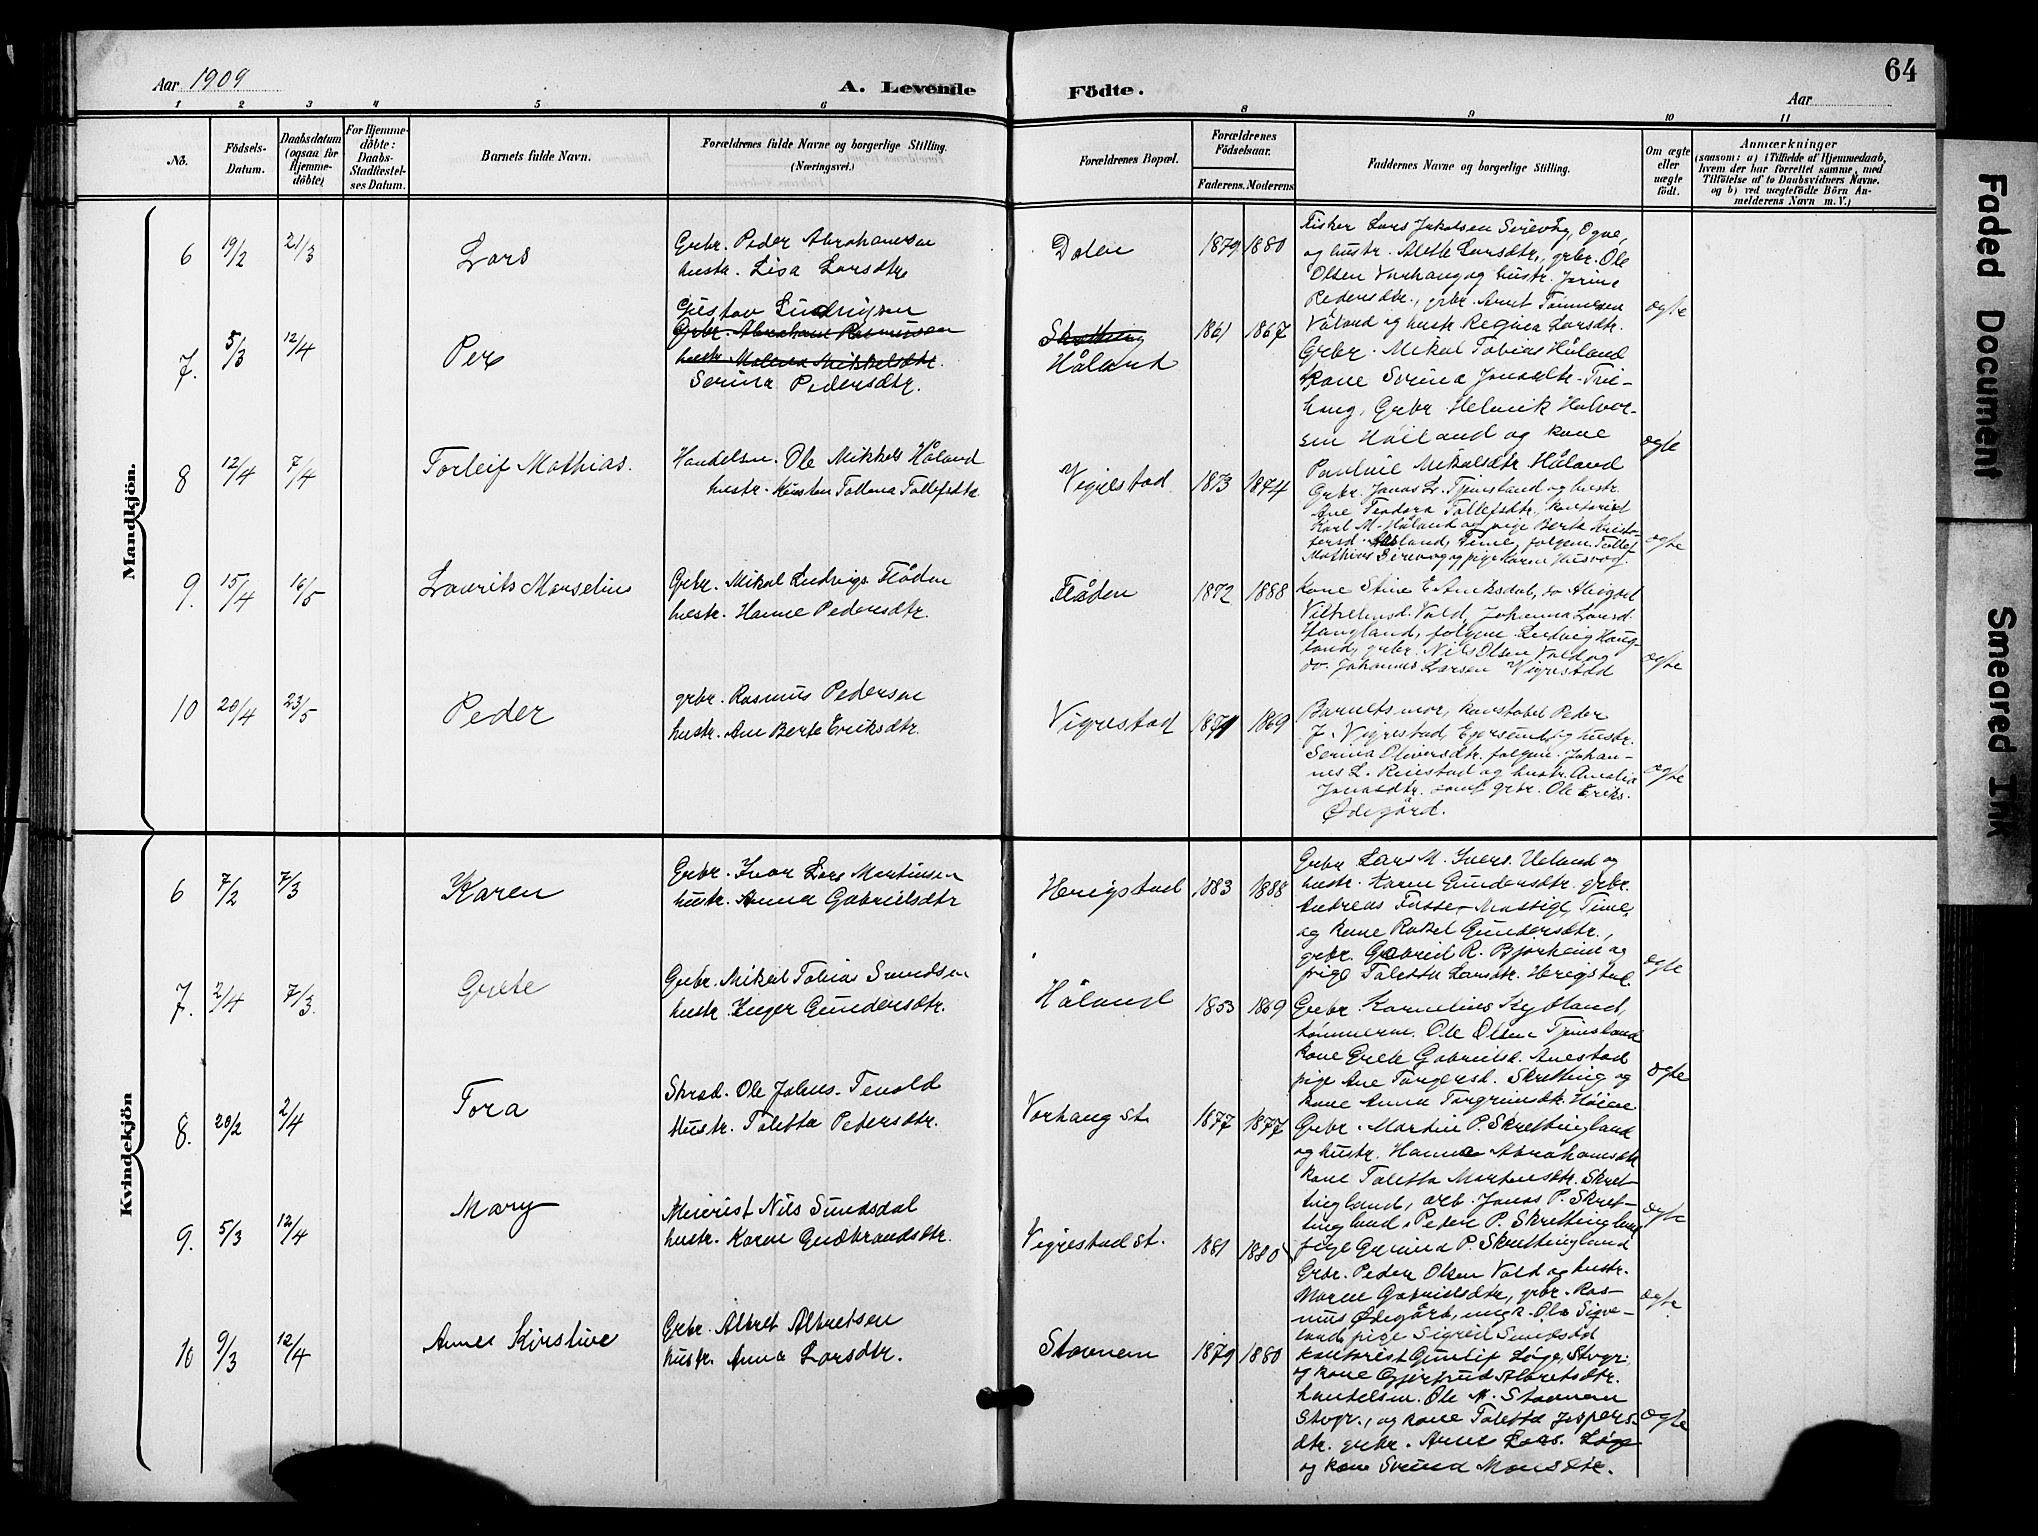 64
Aar 1909
A. Levende Födte.
Aar
1 2 3 4 5 6 8 9 10 11
No.
Födsels-Datum.
Daabsdatum (ogsaa for Hjemme-döbte)
For Hjemme-döbte: Daabs-Stadfæstel-ses Datum.
Barnets fulde Navn.
Forældrenes fulde Navne og borgerlige Stilling. (Næringsvei.)
Forældrenes Bopæl.
Forældrenes Födselsaar.
Faderens. Moderens.
Faddernes Navne og borgerlige Stilling.
Om ægte eller uægte födt.
Anmærkninger
(saasom: a) i Tilfælde af Hjemmedaab, hvem der har forrettet samme, med Tilföielse af to Daabsvidners Navne. og b) ved uægtefödte Börn An-melderens Navn m. V.)
Mandkjön.
6 19/2 21/3 Lars
Grbr. Peder Abrahamsen
hustr. Lisa Larsdtr
Dalen 1879 1880
Fisker Lars Jakobsen Sirevåg, Ogne,
og hustr. Alette Larsdtr., grbr. Ole
Olsen Varhaug og hustr. Jorine
Pedersdtr., grbr. Arnt Tønnesen
Våland og hustr. Regina Larsdtr.
ægte
7. 5/3 12/4 Per
Gustav Ludvigsen
Grbr. Abraham Rasmussen
hustr. Malena Mikkelsdtr.
Serina Pedersdtr.
Håland 1861 1867
Grbr. Mikal Tobias Håland
kone Serina Jonasdtr. Tvi-
haug, Grbr. Helmik Halvor-
sen Håiland og kone
Pauline Mikalsdtr. Håland
ægte
8 12/4 7/4 Torleif Mathias.
Handelsm. Ole Mikkels Håland
hustr. Kirsten Tallena Tollefsdtr.
Vigrestad 1873 1874
Grbr. Jonas L. Tjensland og hustr.
Ane Teodora Tollefsdtr., kontorist
Karl M. Håland og pige Berta Kristo-
fersd. Aasland, Time, følgem. Tollef
Mathias Sirevog og pige Karen Husvog.
ægte
9. 15/4 16/5 Laurits Marselius
Grbr. Mikal Ludvigs Flåden
hustr. Hanne Pedersdtr.
Flåden 1872 1888
Kone Stine E. Aniksdal, do Abigael
Vilhelmsd. Vold, Johanna Larsd.
Haugland, følgem. Ludvig Haug-
land, grbr. Nils Olsen Vold og
do. Johannes Larsen Vigrestad
ægte
10 20/4 23/5 Peder
grbr. Rasmus Pedersen
hustr. Ane Berte Eriksdtr.
Vigrestad 1871 1869
Barnets mor, konstabel Peder
J. Vigrestad, Egersund og hustr.
Serina Oliversdtr. følgem. Johan-
nes L. Reiestad og hustr. Amalia
Jonasdtr. samt grbr. Ole Eriks.
Ødegård.
ægte
Kvindekjön
6 7/2 7/3 Karen
Grbr. Ivar Lars Martinsen
hustr. Anna Gabrielsdtr
Herigstad 1883 1888
Grbr Lars M. Ivers. Ueland og
hustr. Karen Gundersdtr. grbr.
Andreas Fosse, Mossige, Time,
og kone Rakel Gundersdtr.,
grbr. Gabriel R. Bjorheim og
pige Taletta Larsdtr. Herigstad.
ægte
7. 2/4 7/3. Grete
Grbr. Mikal Tobias Svendsen
hustr. Inger Gundersdtr.
Håland 1853 1869
Grbr. Kornelius Kydland,
tømmerm. Ole Olsen Tjensland
kone Grete Gabrielsd. Anestad
pige Ane Torgersd. Skretting og
kone Anna Torgrimsdtr. Høien
ægte
8. 20/2 2/4 Tora
Skræd. Ole Johns. Tenold
Hustr. Taletta Pedersdtr.
Varhaug st. 1877 1877
Grbr. Martin P. Skrettingland
og hustr. Hanna Abrahamsdtr
kone Taletta Martensdtr. Skret-
tingland, arb. Jonas P. Skret-
tingland, Peder P. Skrettingland
pige Gurina P. Skrettingland
ægte
9. 5/3 12/4 Mary
Meierist Nils Sundsdal
hustr. Karen Gudbrandsdtr.
Vigrestad st. 1881 1880
Grbr. Peder Olsen Vold og hustr.
Maren Gabrielsdtr, grbr. Ras-
mus Ødegård, ungk. Ola Sigve-
land, pige Sigrid Sundsdal
ægte
10 9/3 12/4 Anne Kirstine
Grbr. Albret Albretsen
hustr. Anna Larsdtr.
Stavnem 1879 1880
kontorist Gunleif Høge, Stvgr.,
og kone Gjertrud Albretsdtr.
handelsm. Ole M. Stavnem
Stvgr., og kone Taletta Jespers-
dtr. grbr. Arne Lars. Høge
og kone Svend Monsdtr.
ægte
Faded Document
Smeared Ink